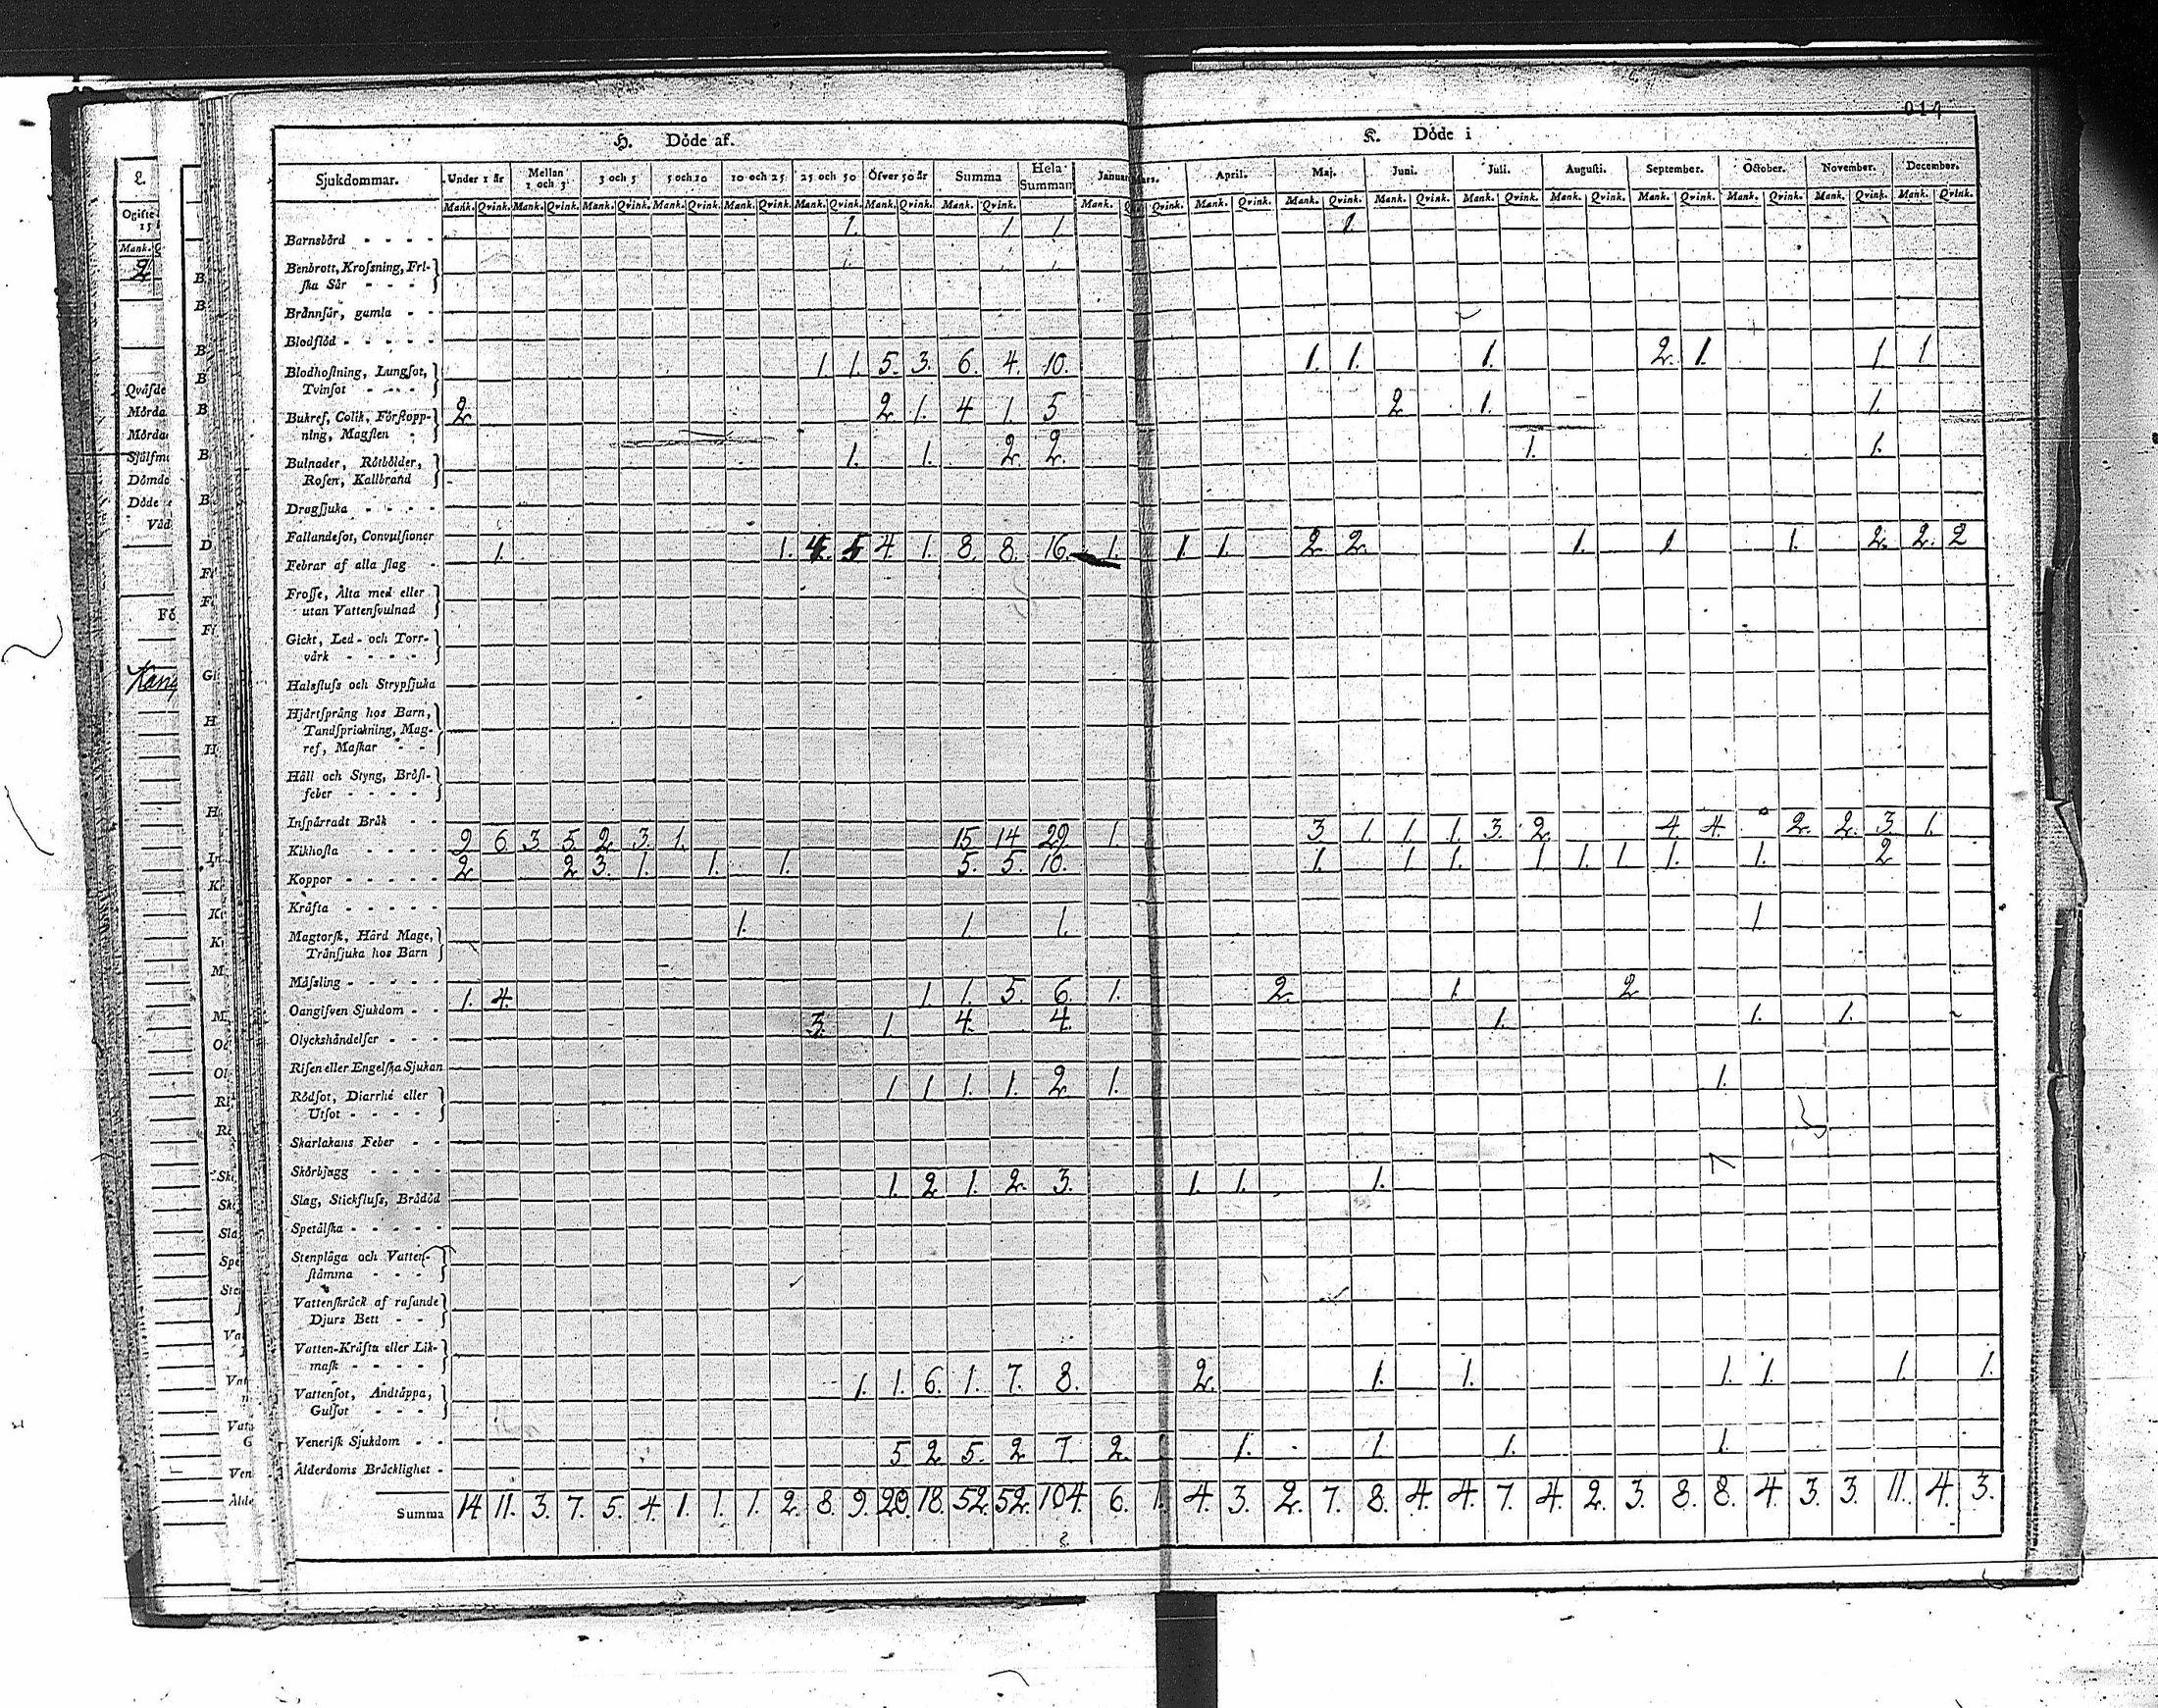 014
H. Döde af.
K. Döde i
Sjukdommar. Under 1 år Mellan 1 och 3 3 och 5 5 och 10 10 och 25 25 och 50 Öfver 50 år Summa Hela Summan Januar ars. April. Maj. Juni. Juli. Augusti. September. October. November. December.
Mank. Qvink. Mank. Qvink. Mank. Qvink. Mank. Qvink. Mank. Qvink. Mank. Qvink. Mank. Qvink. Mank. Qvink. Mank. Q Qvink. Mank. Qvink. Mank. Qvink. Mank. Qvink. Mank. Qvink. Mank. Qvink. Mank. Qvink. Mank. Qvink. Mank. Qvink. Mank. Qvink.
Barnsbörd - - - - 1. 1 1 1
Benbrott, Krossning, Fri-
ska Sår - - - -
Brännsår, gamla - -
Blodflöd - - - - -
Blodhostning, Lungsot, 1. 1. 5. 3. 6. 4. 10. 1. 1. 1. 2. 1. 1. 1.
Tvinsot - - - -
Bukref, Colik, Förstopp- 2. 2. 1. 4 1. 5 2 1. 1.
ning, Magsten -
Bulnader, Rötbölder, 1. 1. 2. 2. 1. 1.
Rosen, Kallbrand
Dragsjuka - - - -
Fallandesot, Convulsioner
Febrar af alla slag - 1. 1. 4. 5 4. 1. 8. 8. 16. 1. 1. 1. 2. 2. 1. 1. 1. 2. 2. 2
Frosse, Älta med eller
utan Vattensvulnad
Gickt, Led- och Torr-
värk - - - -
Halsfluss och Strypsjuka
Hjärtsprång hos Barn,
Tandsprickning, Mag-
ref, Maskar - -
Håll och Styng, Bröst-
feber - - - -
Inspärradt Bråk - -
Kikhosta - - - - 9 6. 3. 5. 2. 3. 1. 15. 14 29. 1. 3 1. 1. 1. 3. 2. 4. 4. 2. 2. 3. 1.
Koppor - - - - - 2. 2 3. 1. 1. 1. 5. 5. 10. 1. 1 1. 1 1. 1 1. 1. 2
Kräfta - - - - -
Magtorsk, Hård Mage, 1. 1. 1. 1
Trånsjuka hos Barn
Mässling - - - - -
Oangifven Sjukdom - - 1. 4. 1 1. 5. 6. 1. 2. 1. 2
Olyckshändelser - - - 3. 1. 4. 4. 1. 1. 1.
Risen eller Engelska Sjukan
Rödsot, Diarrhé eller 1 1 1. 1. 2. 1. 1.
Utsot - - - -
Skarlakans Feber - -
Skörbjugg - - - -
Slag, Stickfluss, Brådöd 1. 2 1. 2. 3. 1. 1. 1.
Spetälska - - - - -
Stenplåga och Vatten-
stämma - - - -
Vattenskräck af rasande
Djurs Bett - -
Vatten-Kräfta eller Lik-
mask - - - -
Vattensot, Andtäppa, 1. 1. 6. 1. 7. 8. 2. 1. 1. 1. 1. 1. 1.
Gulsot - - -
Venerisk Sjukdom - -
Ålderdoms Bräcklighet - 5 2 5. 2 7 2. 1. 1. 1. 1.
Summa 14 11. 3. 7. 5. 4. 1. 1. 1. 2. 8. 9. 20. 18. 52. 52. 104. 6. 1. 4. 3. 2. 7. 8. 4. 4. 7. 4. 2. 3. 8. 8. 4. 3. 3. 11. 4. 3.